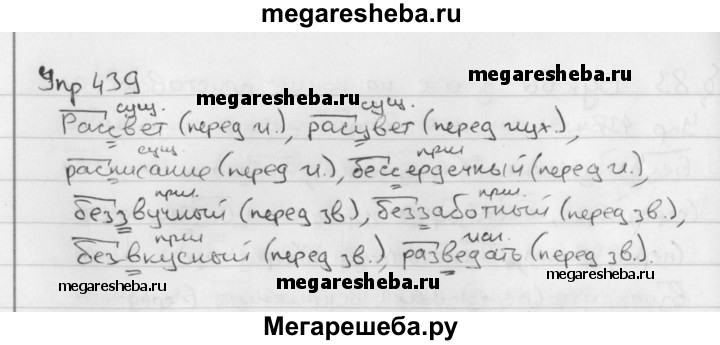 megaresheba.ru
Упр 439
megaresheba.ru
сущ. сущ.
Рассвет (перед и.), расцвет (перед шух.),
сущ. прил
расписание (перед и.), бессердечный (перед и.),
прил. прил.
беззвучный (перед зв), беззаботный (перед зв.),
прил
безвкусный (перед зв.), разведать (перед зв.).
megaresheba.ru megaresheba.ru
Мегарешеба.ру